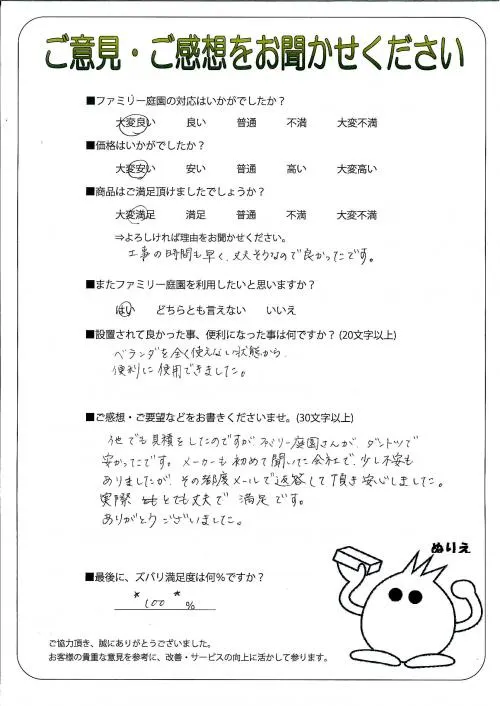 ご意見・ご感想をお聞かせください
■ファミリー庭園の対応はいかがでしたか？
大変良い 良い 普通 不満 大変不満
■価格はいかがでしたか？
大変安い 安い 普通 高い 大変高い
■商品はご満足頂けましたでしょうか？
大変満足 満足 普通 不満 大変不満
⇒よろしければ理由をお聞かせください。
工事の時間も早く、丈夫そうなので良かったです。
■またファミリー庭園を利用したいと思いますか？
はい どちらとも言えない いいえ
■設置されて良かった事、便利になった事は何ですか？(20文字以上)
ベランダを全く使えない状態から
便利に使用できました。
■ご感想・ご要望などをお書きくださいませ。(30文字以上)
他でも見積をしたのですが、ファミリー庭園さんが、ダントツで
安かったです。メーカーも初めて聞いた会社で、少し不安も
ありましたが、その都度メールで返答して頂き安心しました。
実際 とても丈夫で 満足です。
ありがとうございました。
ぬりえ
■最後に、ズバリ満足度は何％ですか？
* 100 * %
ご協力頂き、誠にありがとうございました。
お客様の貴重な意見を参考に、改善・サービスの向上に活かして参ります。